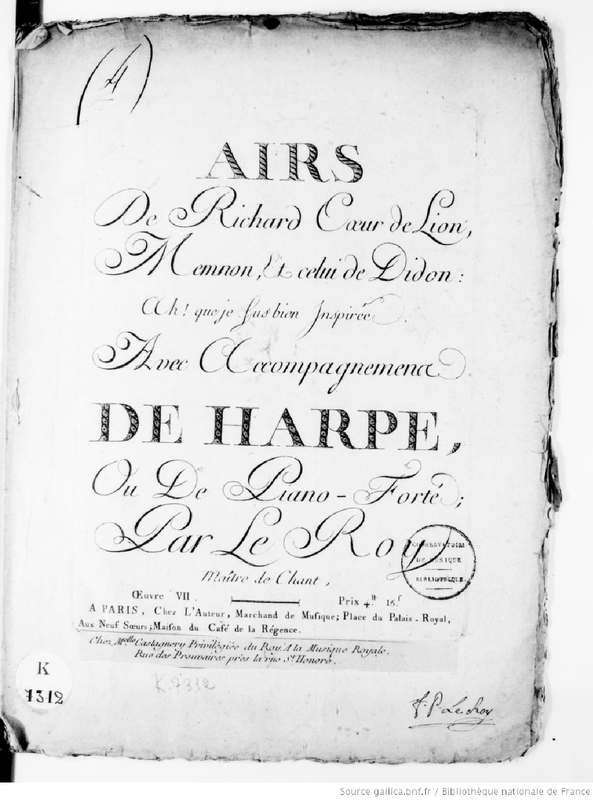 (4)
AIRS
De Richard Cœur de Lion,
Memnon, Et celui de Didon:
Ah! que je fus bien Inspirée.
Avec Accompagnement
DE HARPE,
Ou De Piano-Forté;
Par Le Roy
Maître de Chant,
CONSERVATOIRE
DE MUSIQUE
BIBLIOTHÈQUE.
Œuvre VII. Prix 4.tt 16.s
A PARIS, Chez L'Auteur, Marchand de Musique; Place du Palais-Royal,
Aux Neuf Sœurs; Maison du Café de la Régence.
Chez Melle Castagnery Privilégiée du Roy, A la Musique Royale.
Rue des Prouvaires près la rue St Honoré.
K
7312
K.7312
J. P. Le Roy
Source gallica.bnf.fr / Bibliothèque nationale de France